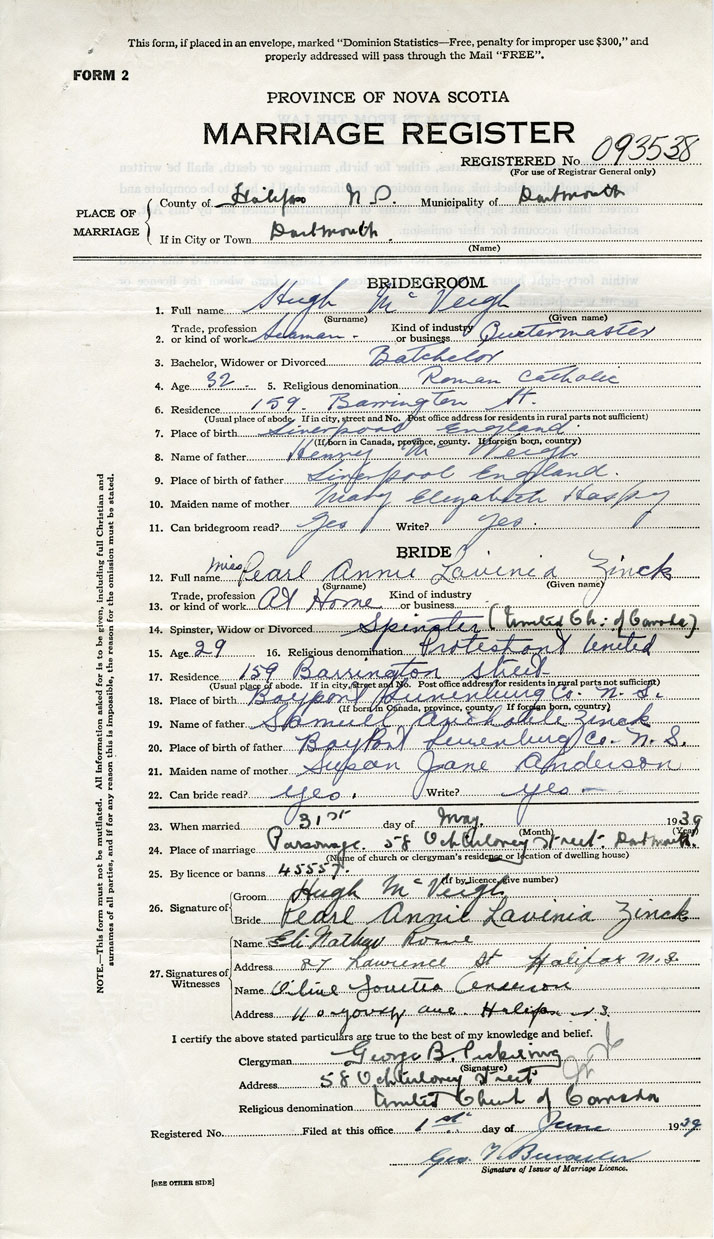 This form, if placed in an envelope, marked "Dominion Statistics—Free, penalty for improper use $300," and
properly addressed will pass through the Mail "FREE".
FORM 2
PROVINCE OF NOVA SCOTIA
MARRIAGE REGISTER
REGISTERED No. 093538
(For use of Registrar General only)
PLACE OF MARRIAGE
County of Halifax N.S. Municipality of Dartmouth
If in City or Town Dartmouth
(Name)
BRIDEGROOM
1. Full name Hugh McVeigh
(Surname) (Given name)
2. Trade, profession or kind of work Seaman - Kind of industry or business Quetermaster
3. Bachelor, Widower or Divorced Batchelor
4. Age 32 5. Religious denomination Roman Catholic
6. Residence 159 Barrington St.
(Usual place of abode. If in city, street and No. Post office address for residents in rural parts not sufficient)
7. Place of birth Liverpool England
(If born in Canada, province, county. If foreign born, country)
8. Name of father Henry McVeigh
9. Place of birth of father Liverpool England.
10. Maiden name of mother Mary Elizabeth
11. Can bridegroom read? Yes Write? Yes.
BRIDE
12. Full name Miss Pearl Annie Lavinia Zinck
(Surname) (Given name)
13. Trade, profession or kind of work At Home Kind of industry or business
14. Spinster, Widow or Divorced Spinster (United Ch. of Canada)
15. Age 29 16. Religious denomination Protestant United
17. Residence 159 Barrington Street
(Usual place of abode. If in city, street and No. Post office address for residents in rural parts not sufficient)
18. Place of birth Bayport Lunenburg Co. N.S.
(If born in Canada, province, county. If foreign born, country)
19. Name of father Samuel Zinck
20. Place of birth of father BayPort Lunenburg Co. N.S.
21. Maiden name of mother Susan Jane Anderson
22. Can bride read? yes. Write? yes —
23. When married 31st day of May, 1939
(Month) (Year)
24. Place of marriage Parsonage. 58 Ochterloney Street. Dartmouth.
(Name of church or clergyman's residence or location of dwelling house)
25. By licence or banns 45557.
(If by licence, give number)
26. Signature of
Groom Hugh McVeigh
Bride Pearl Annie Lavinia Zinck
27. Signatures of Witnesses
Name Eli Nathan Rowe
Address 87 Lawrence St Halifax N.S.
Name Loretta Anderson
Address Ave. Halifax N.S.
I certify the above stated particulars are true to the best of my knowledge and belief.
Clergyman George B. Pickering
(Signature)
Address 58 Ochterloney Street
Religious denomination United Church of Canada
Registered No. Filed at this office 1st day of June 1939
Geo.
Signature of Issuer of Marriage Licence.
[SEE OTHER SIDE]
NOTE.—This form must not be mutilated. All information asked for is to be given, including full Christian and
surnames of all parties, and if for any reason this is impossible, the reason for the omission must be stated.